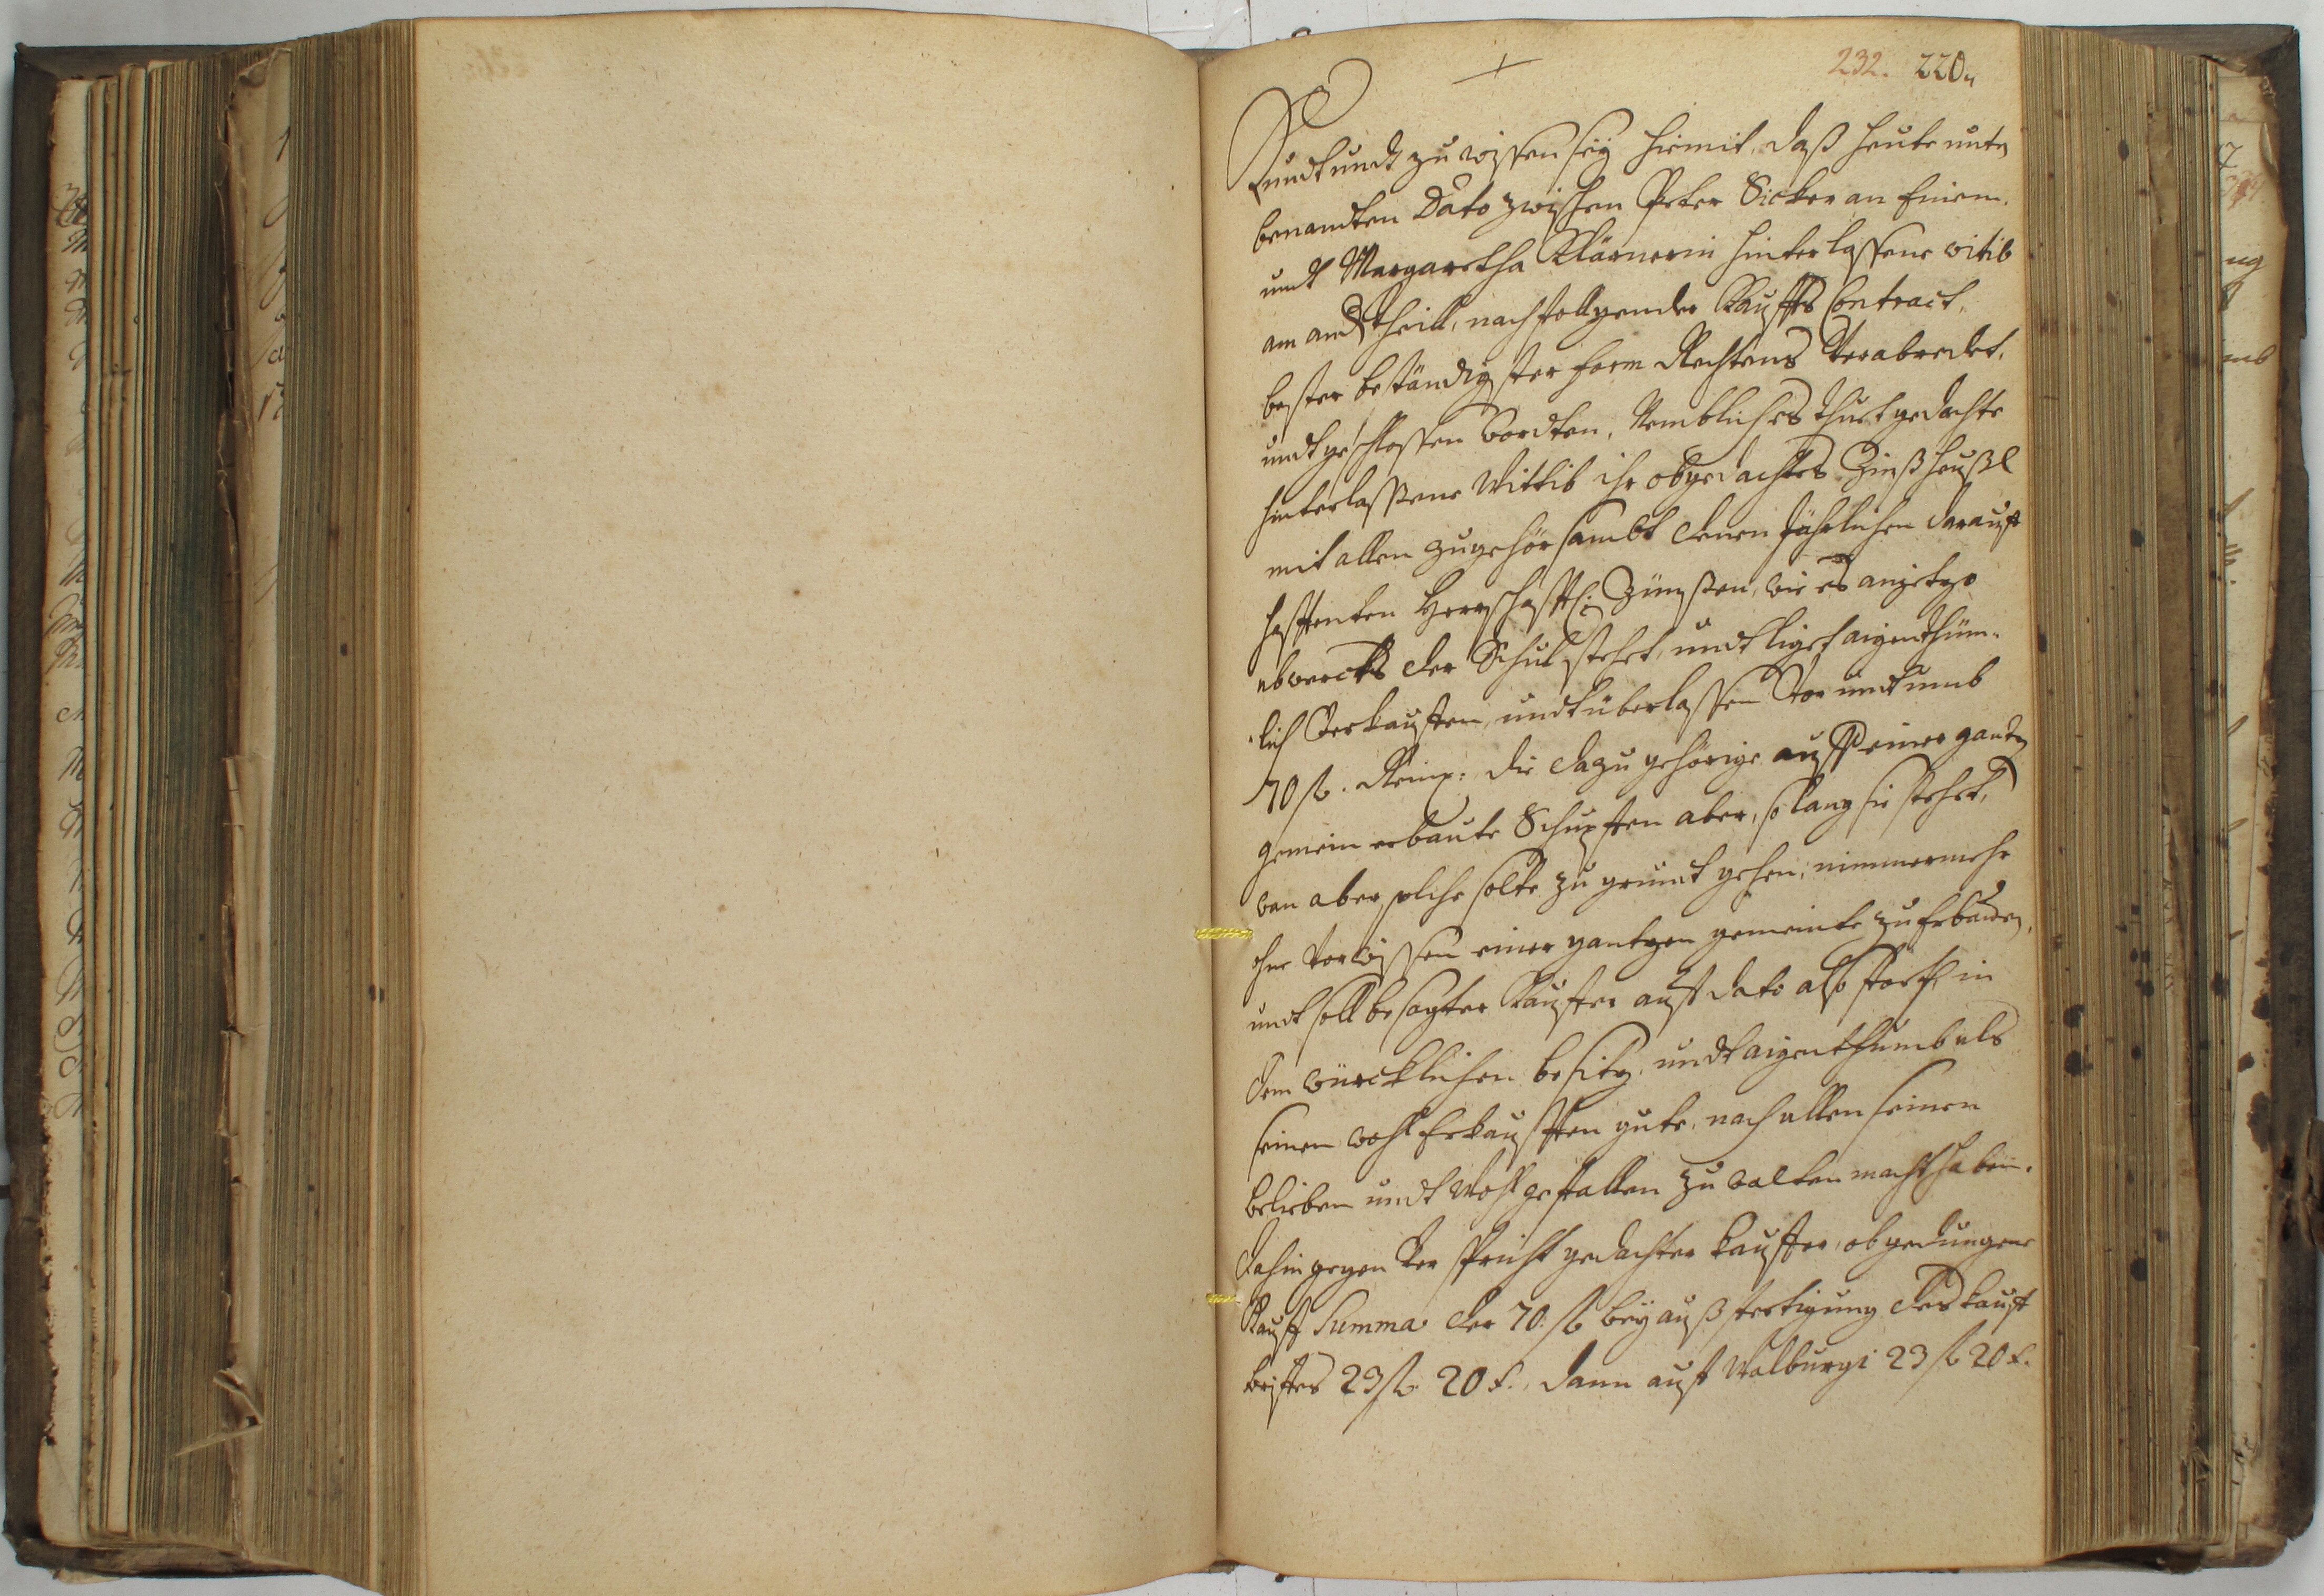 232. 220.
Kundt undt zu wissen sey hiemit, daß heute unten
benandten Dato zwischen Peter Sicker an Einem.
undt Margaretha Klärnerin hinterlassene witib
am andern theill, nachfollgender Kauffs Contract,
bester beständigster form Rechtens Verabredet,
undt geschlossen worden, Nemblich es thuet gedachte
hinterlassene Wittib ihr obgedachtes Zinßheußl
mit allen zugehör sambt denen Jährlichen darauf
hafftenten Herrschafftl: Zünßen, wie es anjetzo
abwerts der Schul stehet, undt liget aigenthüm-
lich Verkauffen, undt überlassen Vor undt umb
70 fl. Reinx: die dazu gehörige auff einer gantzen
gemein erbaute Schupffen aber, so lang sie stehet,
wan aber solche solte zu grundt gehen, nimmermehr
ohne Vorwissen einer gantzen gemeinte zu Erbauen,
undt soll besagter Kauffer auß dato also forth in
dem würcklichen besitz, undt aigenthumb als
seinem wohl Erkaufften gute, nach allen seinen
belieben undt Wohlgefallen zu walten macht haben.
Dahingegen Verspricht gedachter Kauffer, obgedungene
Kauff Summa der 70. fl. bey außfertigung des Kauff
brieffes 23 fl. 20 x. dann auf Walburgi 23 fl 20 x.